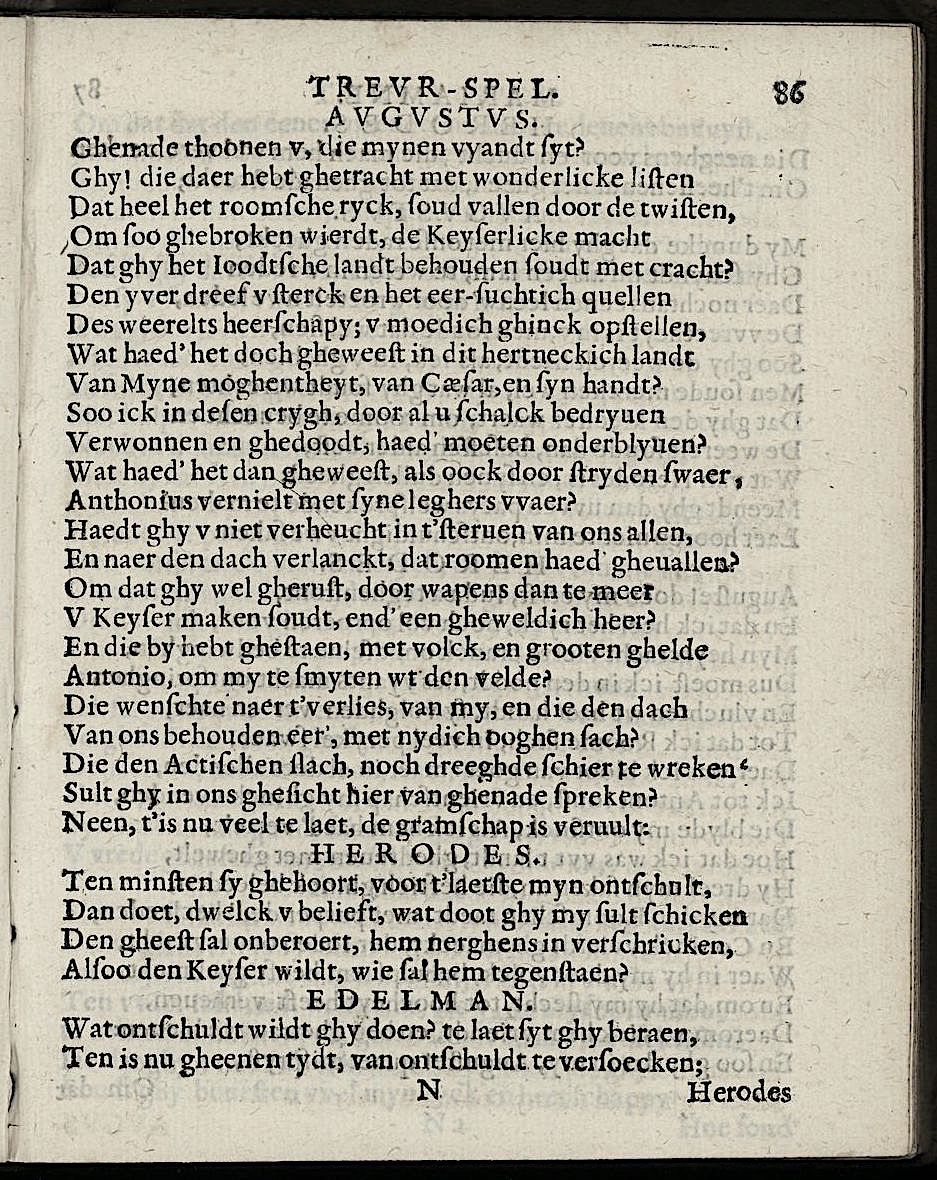 TREVR-SPEL. 86
AVGVSTVS.
Ghenade thoonen v, die mynen vyandt ſyt?
Ghy! die daer hebt ghetracht met wonderlicke liſten
Dat heel het roomſche ryck, ſoud vallen door de twiſten,
Om ſoo ghebroken wierdt, de Keyſerlicke macht
Dat ghy het Ioodtſche landt behouden ſoudt met cracht?
Den yver dreef v ſterck en het eer-ſuchtich quellen
Des weerelts heerſchapy; v moedich ghinck opſtellen,
Wat haed' het doch gheweeſt in dit hertneckich landt
Van Myne moghentheyt, van Cæſar, en ſyn handt?
Soo ick in deſen crygh, door al u ſchalck bedryuen
Verwonnen en ghedoodt, haed' moeten onderblyuen?
Wat haed' het dan gheweeſt, als oock door ſtryden ſwaer,
Anthonius vernielt met ſyne leghers vvaer?
Haedt ghy v niet verheucht in t'ſteruen van ons allen,
En naer den dach verlanckt, dat roomen haed' gheuallen?
Om dat ghy wel gheruſt, door wapens dan te meer
V Keyſer maken ſoudt, end' een gheweldich heer?
En die by hebt gheſtaen, met volck, en grooten ghelde
Antonio, om my te ſmyten wt den velde?
Die wenſchte naer t'verlies, van my, en die den dach
Van ons behouden eer', met nydich ooghen ſach?
Die den Actiſchen ſlach, noch dreeghde ſchier te wreken‘
Sult ghy in ons gheſicht hier van ghenade ſpreken?
Neen, t'is nu veel te laet, de gramſchap is veruult:
HERODES.
Ten minſten ſy ghehoort, voor t'laetſte myn ontſchult,
Dan doet, dwelck v belieft, wat doot ghy my ſult ſchicken
Den gheeſt ſal onberoert, hem nerghens in verſchricken,
Alſoo den Keyſer wildt, wie ſal hem tegenſtaen?
EDELMAN.
Wat ontſchuldt wildt ghy doen? te laet ſyt ghy beraen,
Ten is nu gheenen tydt, van ontſchuldt te verſoecken;
N Herodes